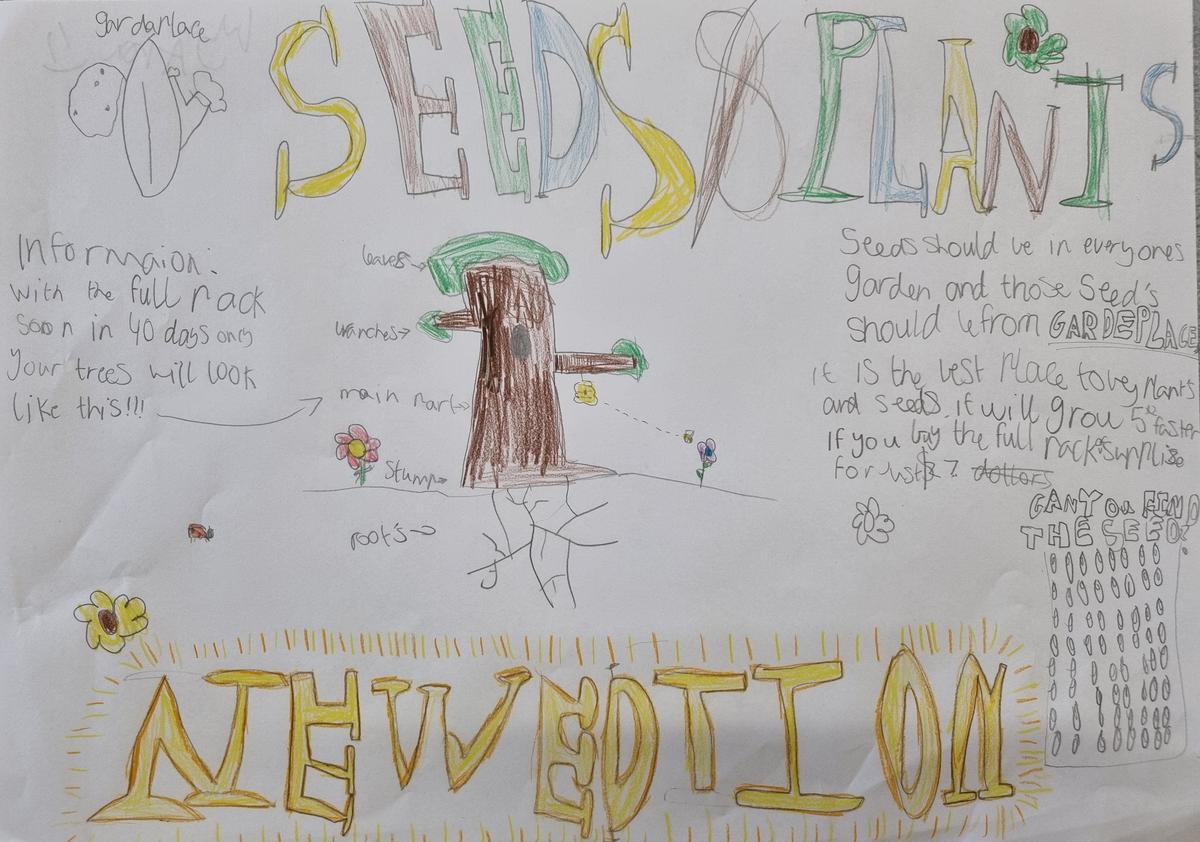 gardaPlace
SEEDS & PLANTS
Informaion:
with the full pack
soon in 40 days only
your trees will look
like this!!!
leaves
branches
main part
Stump
root's
Seeds should be in everyones
garden and those Seed's
should be from GARDEPLACE
it is the best Place to bey Plants
and seeds. it will grow 5 faster
If you buy the full
for Just $7 dollars
CAN YOU FIND
THE SEED?
NEW EDTION